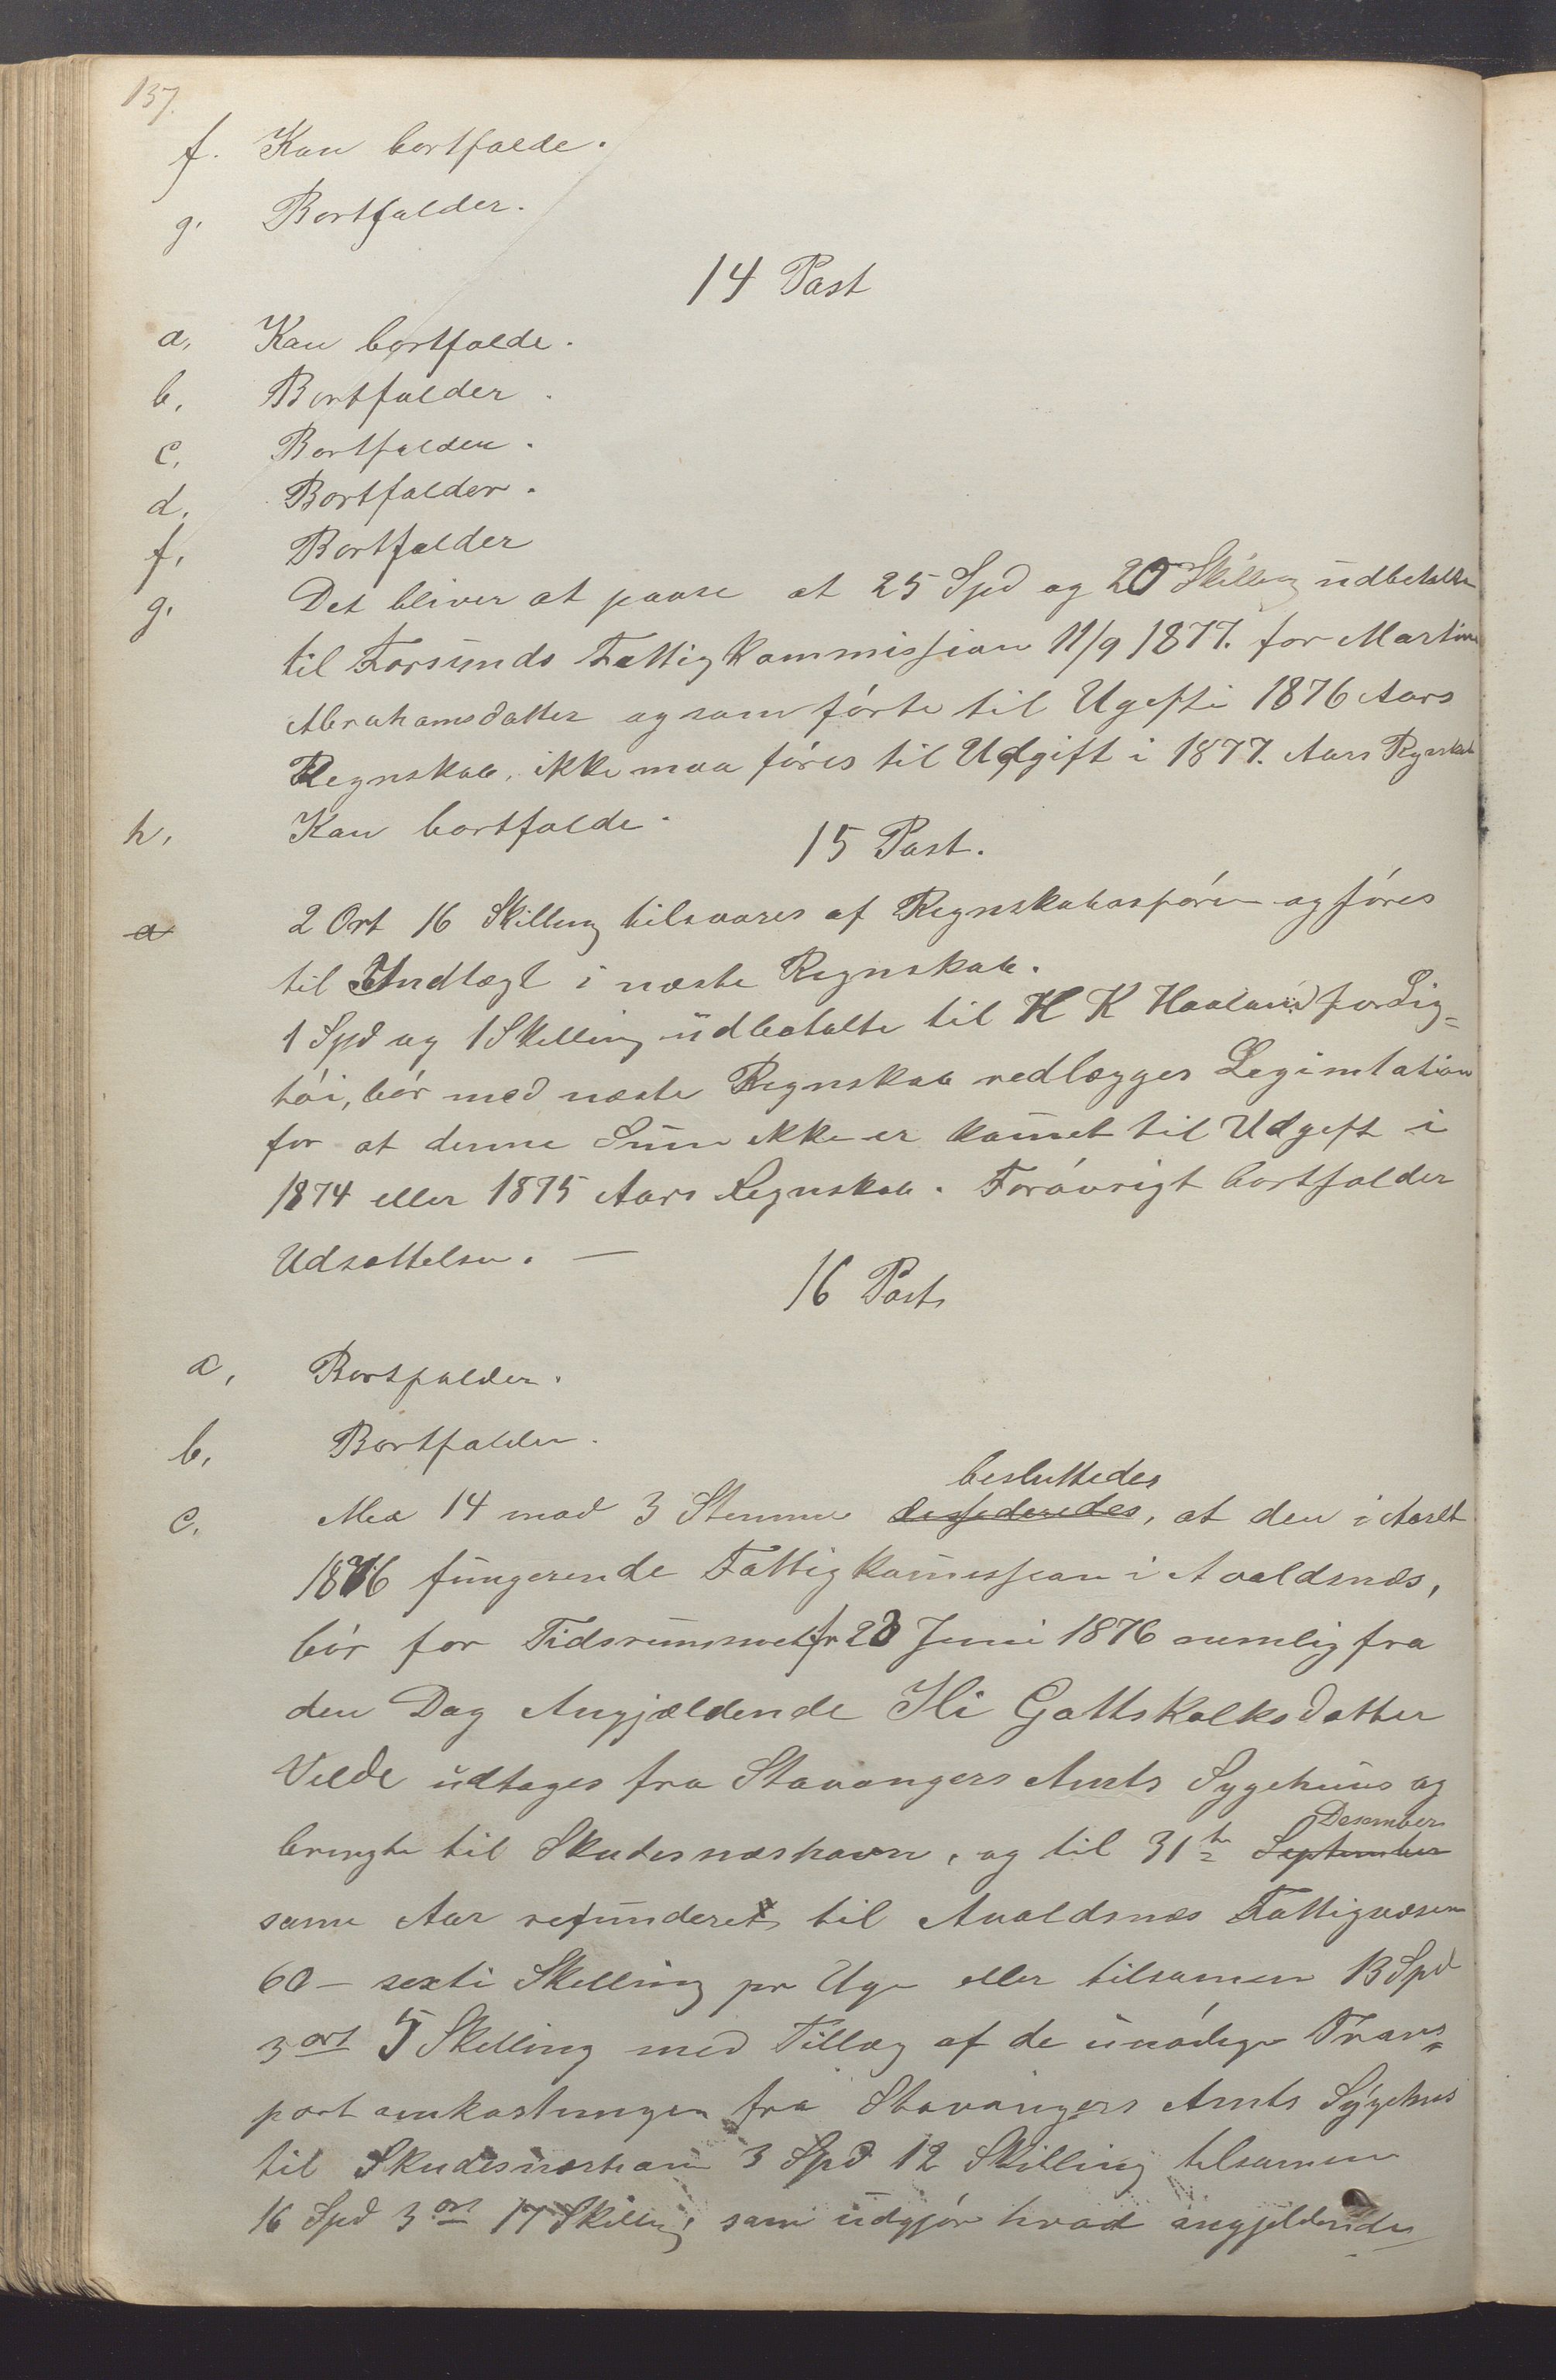 137.
f. Kan bortfalde.
g. Bortfalder.
14 Post
a, Kan bortfalde.
b, Bortfalder.
c, Bortfalder.
d, Bortfalder.
f, Bortfalder
g, Det bliver at paase at 25 Spd og 20 Skilling udbetalte
til Forsunds Fattigkommission 11/9 1877. for Martine
Abrahamsdatter og som förte til Ugift i 1876 Aars
Regnskab, ikke maa föres til Udgift i 1877. Aars Regnskab
h, Kan bortfalde.
15 Post.
a 2 Ort 16 Skilling tilsvares af Regnskabsförer og föres
til Indtægt i næste Regnskab.
1 Spd og 1 Skilling udbetalte til H K Haaland for Lig=
töi, bör med næste Regnskab vedlægges Legimtation
for at denne Sum ikke er kom̅et til Udgift i
1874 eller 1875 Aars Regnskab. Forövrigt bortfalder
Udsættelsen. —
16 Post
a, Bortfalder.
b, Bortfalder.
besluttedes
c, Med 14 mod 3 Stemmer desideredes, at den i Aaret
1876 fungerende Fattigkom̅ission i Avaldsnæs,
bör for Tidsrummet fr 28 Juni 1876 nemlig fra
den Dag Angjældende Ili Gottskalksdatter
Velde udtages fra Stavangers Amts Sygehuus og
Desember
bringte til Skudesnæshavn, og til 31te September
samme Aar refunderet til Avaldsnæs Fattigvæsen
60 – sexti Skilling pr Uge eller tilsamen 13 Spd
3 ort 5 Skilling med Tillæg af de unödige Trans=
portomkostninger fra Stavangers Amts Sygehus
til Skudesnæshavn 3 Spd 12 Skilling tilsamen
16 Spd 3 ort 17 Skilling, som udgjör hvad angjeldende